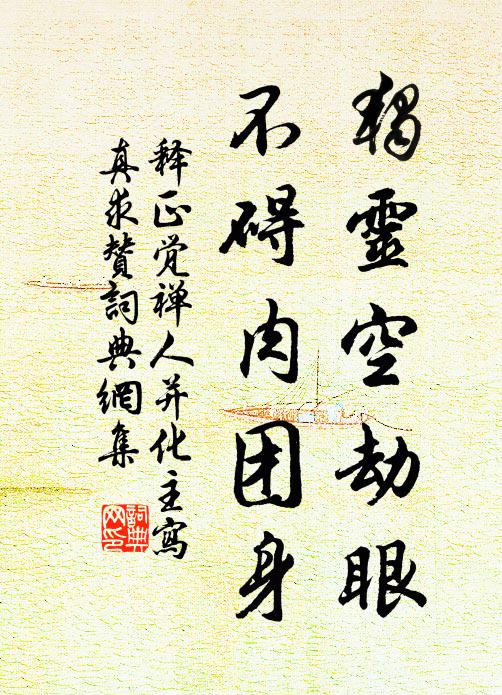 独靈空劫眼
不碍肉团身
释正觉禅人并化主寫
真求賛詞典網集
詞典網印